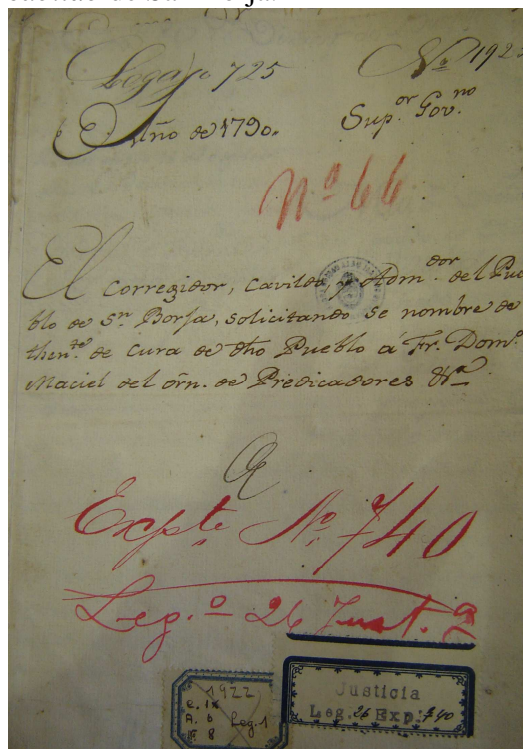 Legajo 725 Nº 192
Año de 1790. Sup.or Gov.no
Nº 66
El Corregidor, Cavildo y Adm.dor del Pue
blo de Sn. Borja, solicitando se nombre de
then.te de Cura de dho Pueblo á Fr. Dom.º
Maciel del órn. de Predicadores &a
Expte. Nº. 740
Leg.º 26 Just. 2
1922
C. IX
A. 6
F 8
Leg. 1
Justicia
Leg. 26 Exp: 740